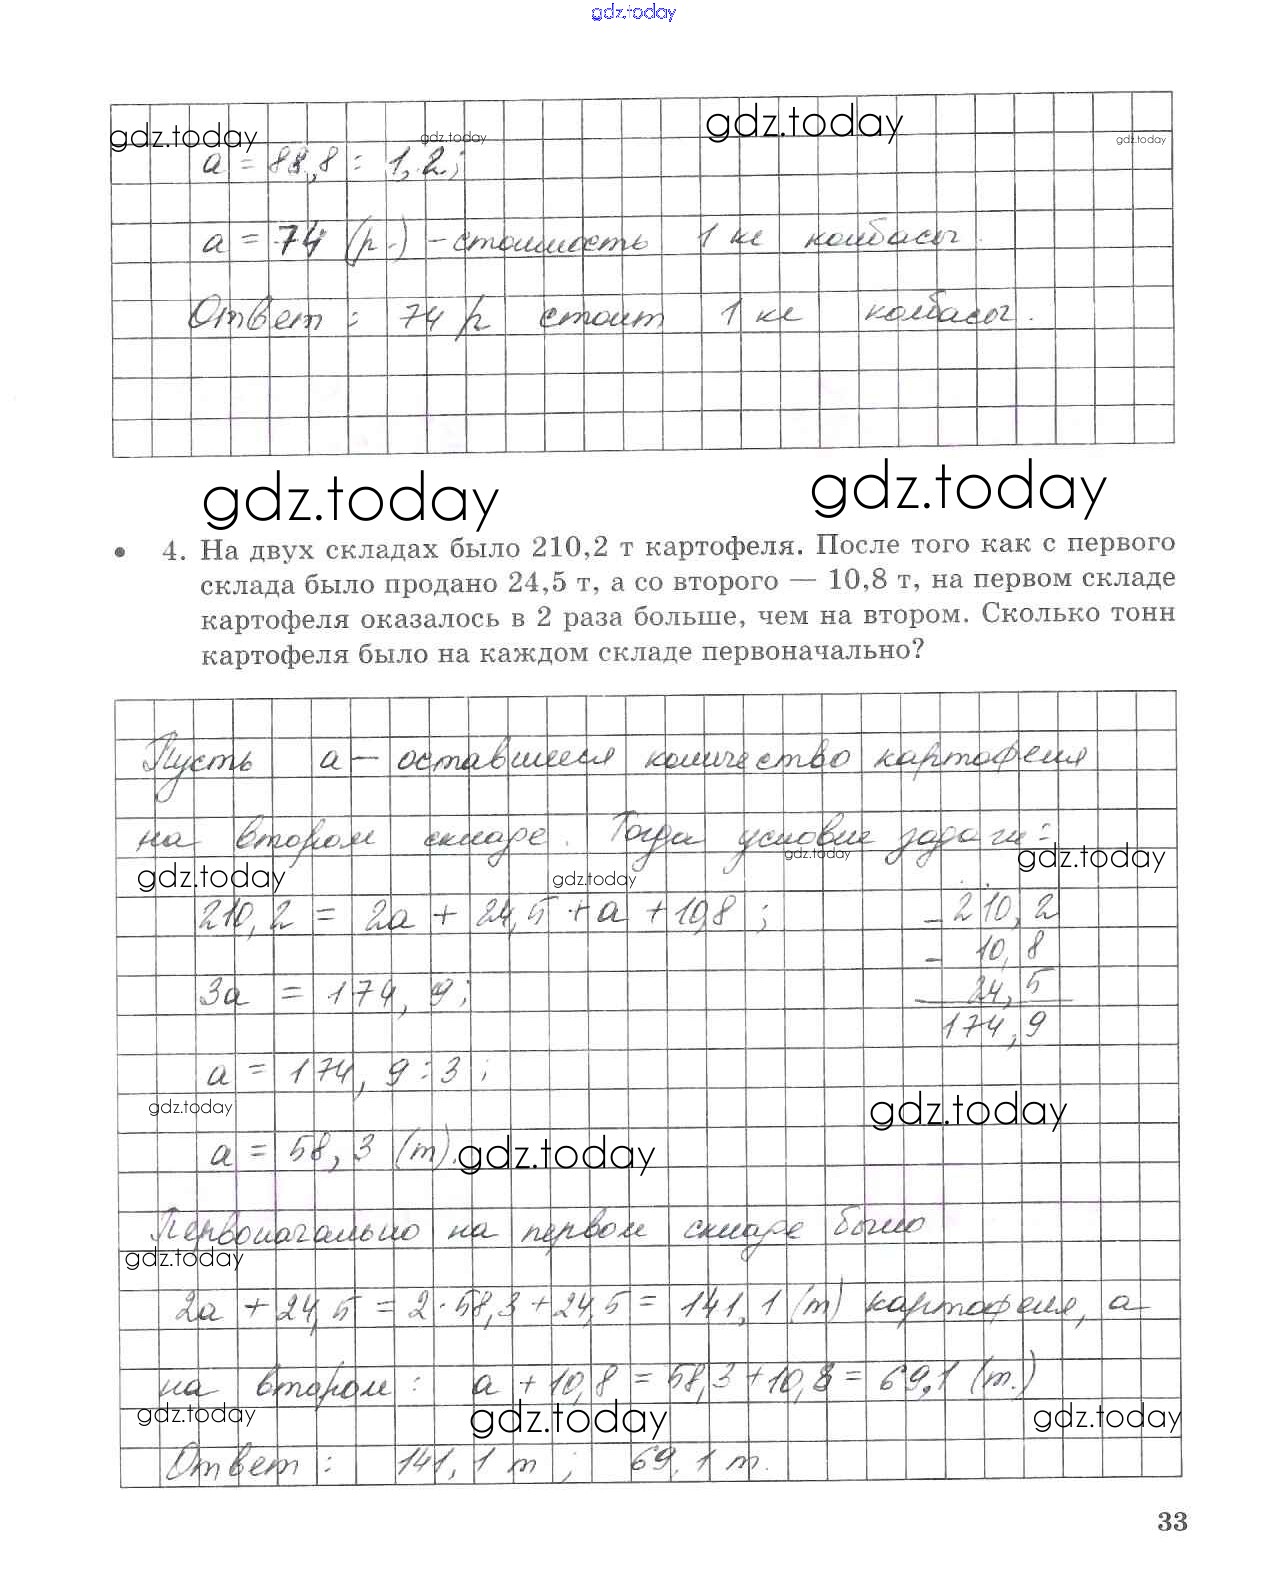 gdz.today
gdz.today gdz.today gdz.today gdz.today
a = 88,8 : 1,2;
a = 74 (р.) - стоимость 1 кг колбасы.
Ответ: 74 р стоит 1 кг колбасы.
gdz.today gdz.today
• 4. На двух складах было 210,2 т картофеля. После того как с первого
склада было продано 24,5 т, а со второго — 10,8 т, на первом складе
картофеля оказалось в 2 раза больше, чем на втором. Сколько тонн
картофеля было на каждом складе первоначально?
Пусть a - оставшееся количество картофеля
на втором складе. Тогда условие задачи:
gdz.today gdz.today gdz.today gdz.today
210,2 = 2a + 24,5 + a + 10,8;
- 210,2
- 10,8
24,5
174,9
3a = 174,9;
a = 174,9 : 3;
gdz.today gdz.today
a = 58,3 (т). gdz.today
Первоначально на первом складе было
gdz.today
2a + 24,5 = 2 · 58,3 + 24,5 = 141,1 (т) картофеля, а
на втором: a + 10,8 = 58,3 + 10,8 = 69,1 (т.)
gdz.today gdz.today gdz.today
Ответ: 141,1 т; 69,1 т.
33